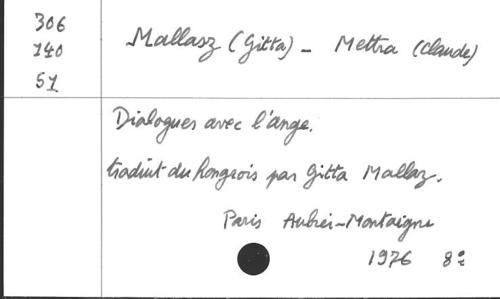 306
140
51
Mallasz (Gitta) - Mettra (Claude)
Dialogues avec l'ange.
traduit du hongrois par Gitta Mallaz.
Paris Aubier-Montaigne
1976 8°